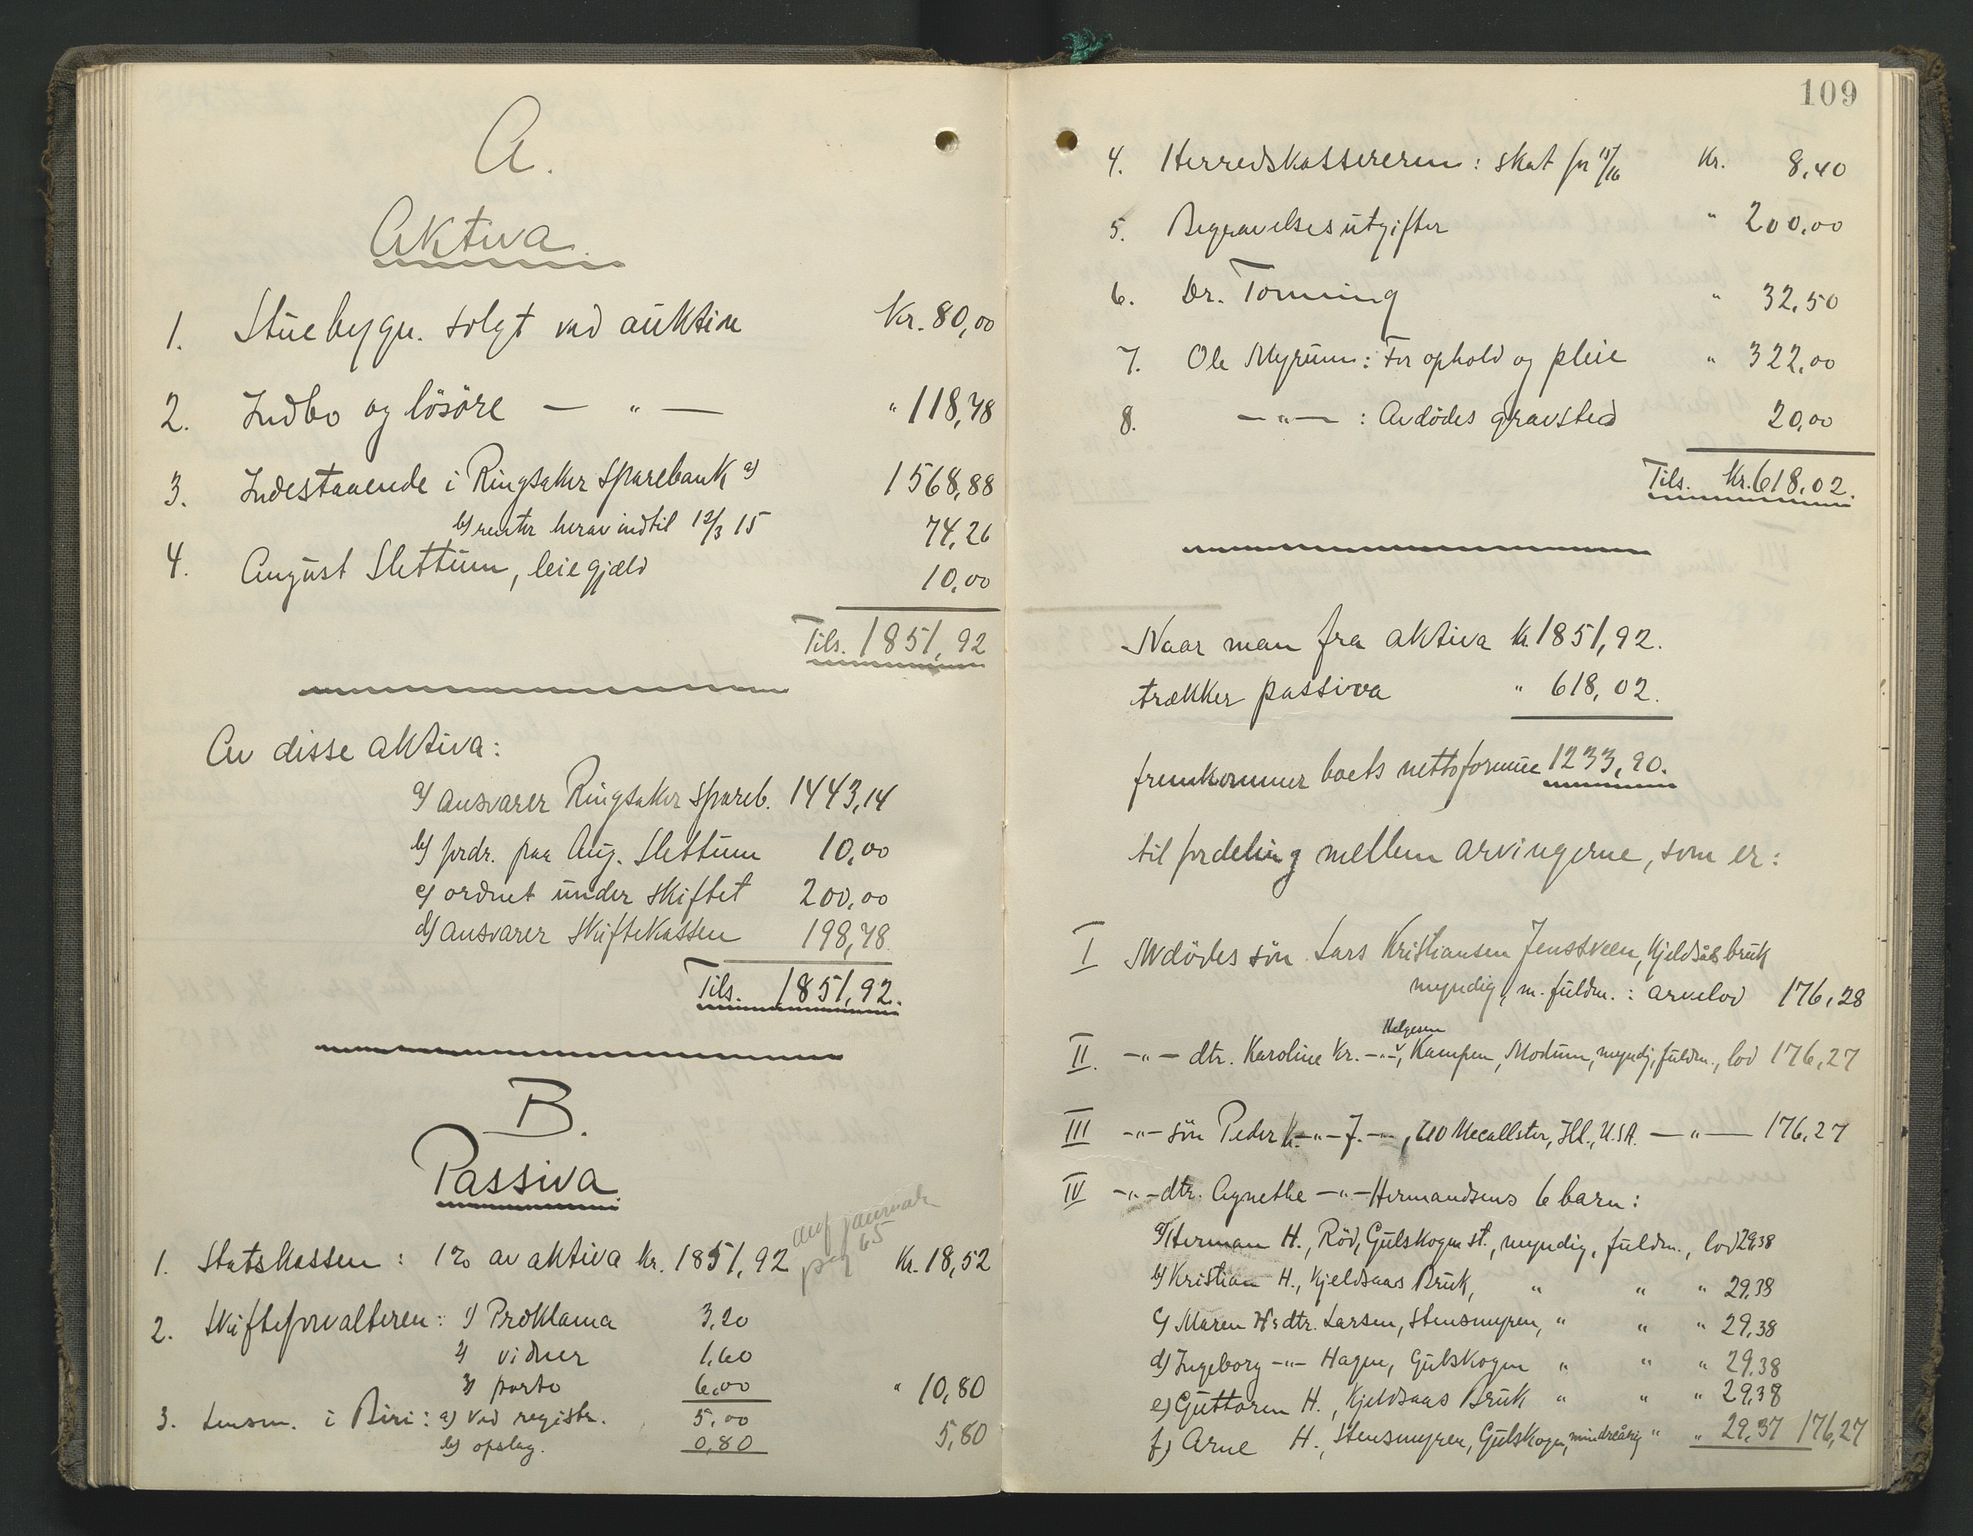 A.
Aktiva
1. Stuebygn. solgt ved auktion Kr. 80,00
2. Indbo og løsøre — " — " 118,78
3. Indestaaende i Ringsaker Sparebank a) 1568,88
b) renter herav indtil 12/3 15 74,26
4. August Slettum, leiegjæld 10,00
Tils. 1851,92
Av disse aktiva:
a) ansvarer Ringsaker Spareb. 1443,14
b) fordr. paa Aug. Slettum 10,00
c) ordnet under skiftet 200,00
d) ansvarer Skiftekassen 198,78
Tils. 1851,92.
B.
Passiva.
anf januar
pag 65
1. Statskassen: 1% av aktiva kr. 1851,92 Kr. 18,52
2. Skifteforvalteren: 1) Proklama 3,20
2) vidner 1,60
3) porto 6,00 " 10,80
3. Lensm. i Biri: a) ved registr. 5,00
b) opslag. 0,80 5,80
109
4. Herredskassereren: skat for 15/16 Kr. 8,40
5. Begravelsesutgifter " 200,00
6. Dr. Torning " 32,50
7. Ole Myrum: For ophold og pleie " 322,00
8. — " — : Avdødes gravsted 20,00
Tils. Kr. 618,02.
Naar man fra aktiva Kr 1851,92.
trækker passiva " 618,02.
fremkommer boets nettoformue 1233,90.
til fordeling mellem arvingerne, som er:
I Avdødes søn Lars Kristiansen Jenssveen, Kjeldsås bruk
myndig, m. fuldm.: arvelod 176,28
Helgesen
II. — " — dtr. Karoline Kr. — " —, Kampen, Modum, myndig, fuldm., lod 176,27
III — " — søn Peder K. — " — J. — " —, 210 Mecallster, Ill., U.S.A. — " — 176,27
IV — " — dtr. Agnethe — " — Hermandsens 6 barn:
a) Herman H., Rød, Gulskogen st., myndig, fuldm., lod 29,38
b) Kristian H., Kjeldsaas Bruk, " " " 29,38
c) Maren H's dtr. Larsen, Stensmyren, " " " 29,38
d) Ingeborg — " — Hagen, Gulskogen " " " 29,38
e) Guttorm H., Kjeldsaas Bruk " " " 29,38
f) Arne H., Stensmyren, Gulskogen, mindreårig " " 29,37 176,27